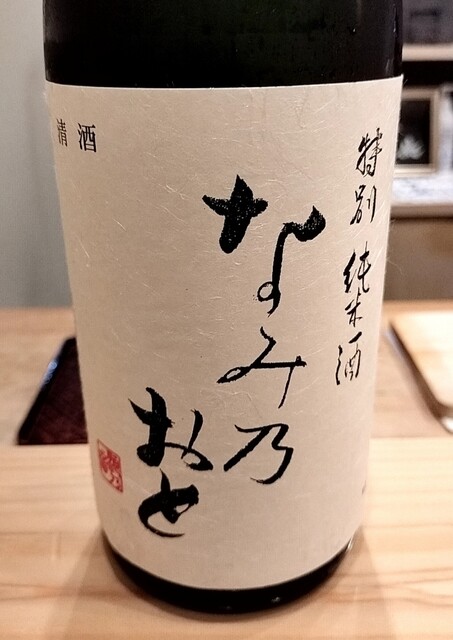 特別純米酒
なみ乃
おと
清酒